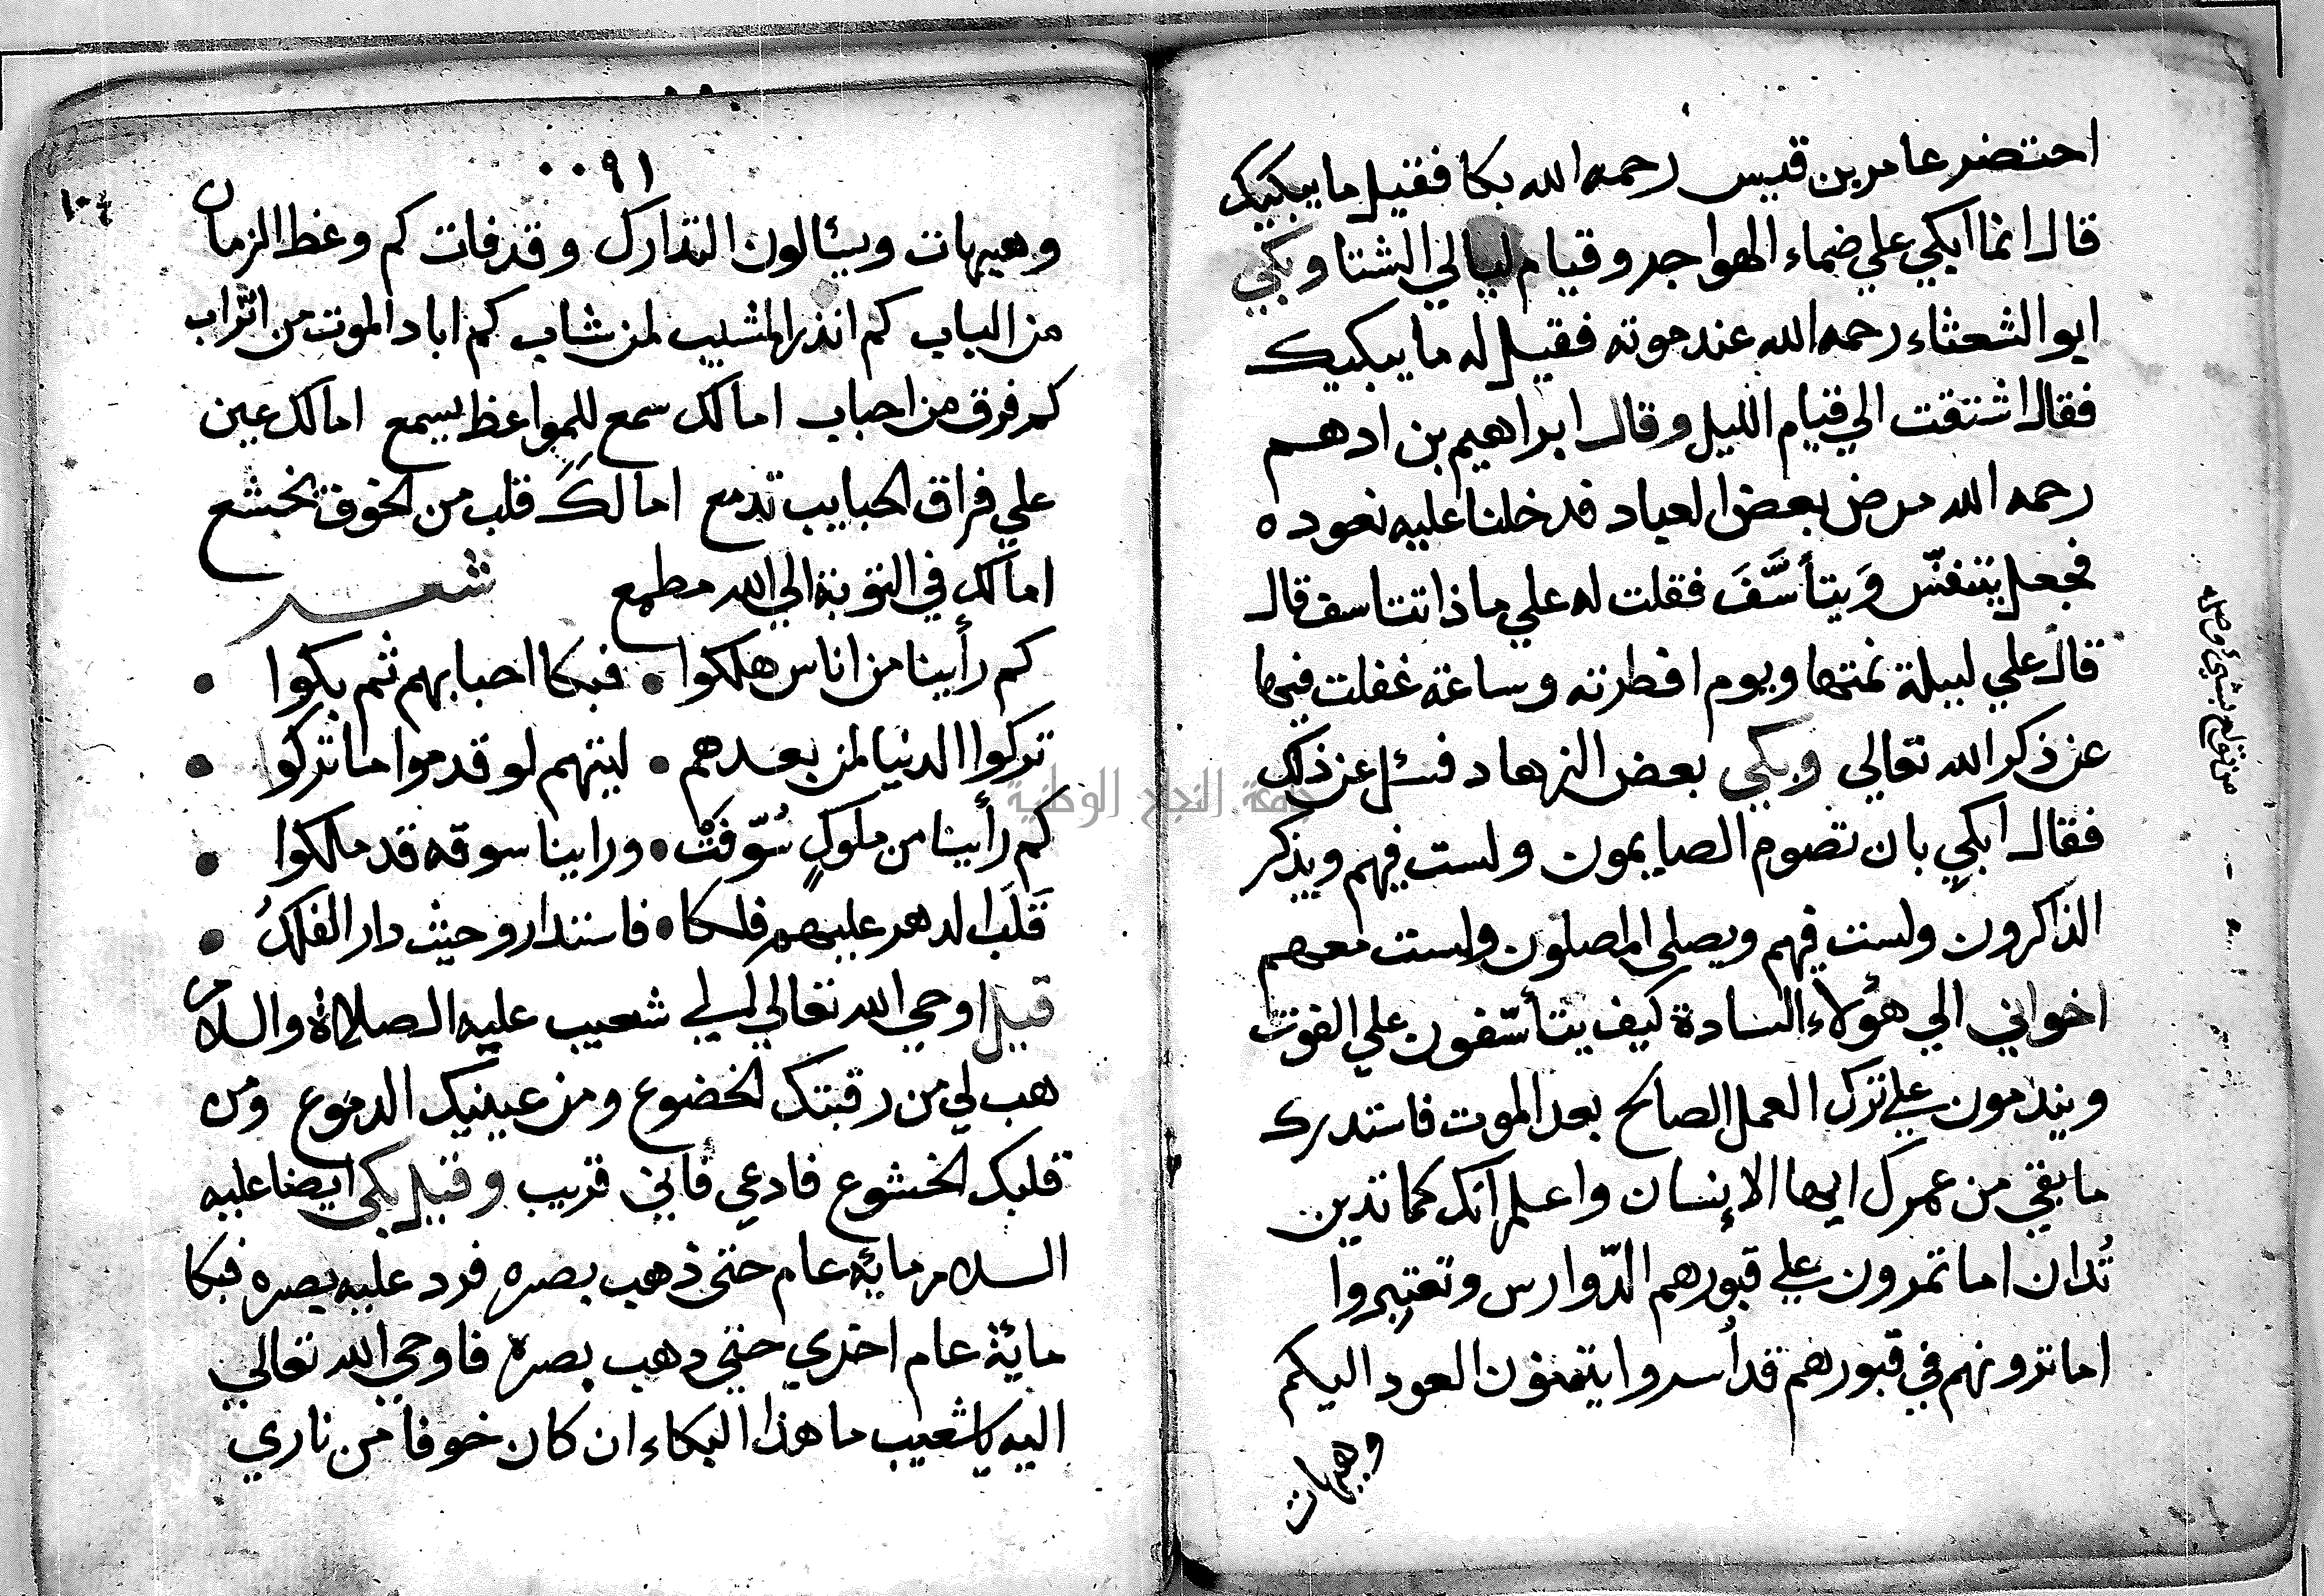 احتضر عامر بن قيس رحمه الله بكا فقيل ما يبكيك
قال انما ابكي علي ضماء الهواجر وقيام ليالي الشتا وبكي
ابو الشعثاء رحمه الله عند موته فقيل له ما يبكيك
فقال اشتقت الي قيام الليل وقال ابراهيم بن ادهم
رحمه الله مرض بعض العباد فدخلنا عليه نعوده
فجعل يتنفّس وَيتأسَّفَ فقلت له علي ماذا تتاسف قال
قال علي ليلة نمتها ويوم افطرته وساعة غفلت فيها
عن ذكر الله تعالي وبكي بعض الزهاد فسئل عن ذلك
فقال ابكي بان تصوم الصايمون ولست فيهم ويذكر
الذاكرون ولست فيهم ويصلي المصلون ولست معهم
اخواني الي هؤلاء السادة كيف يتأسّفون علي الفوت
ويندمون علي ترك العمل الصالح بعد الموت فاستدرك
ما بقي من عمرك ايها الإنسان واعلم انك كما تدين
تُدان اما تمرون علي قبورهم الدّوارس وتعتبروا
اما ترونهم في قبورهم قد أسروا يتمنون العود اليكم
وهيهات
من تولع بشئ وصله
٠٠٩١
١٠٤
وهيهات ويسٔالون التدارك وقد فات كم وعظ الزمان
من الباب كم انذر المشيب لمن شاب كم اباد الموت من اتراب
كم فرق من احباب اما لك سمع للمواعظ يسمع اما لك عين
علي فراق الحبايب تدمع اما لكَ قلب من الخوف يخشع
اما لك في التوبة الي الله مطمع شعر
كم رأينا من اناس هلكوا • فبكا احبابهم ثم بكوا •
تركوا الدنيا لمن بعدهم • ليتهم لو قدموا ما تركوا •
كم رأينا من ملوكٍ سُوّفتْ • وراينا سوقه قد ملكوا •
قَلَب الدهر عليهم فلكا • فاستدارو حيث دار الفلكُ •
قيل اوحي الله تعالي الي شعيب عليه الصلاة والسلام
هب لي من رقبتك الخضوع ومن عينيك الدموع ومن
قلبك الخشوع فادعي فأني قريب وقيل بكي ايضا عليه
السلام مائه عام حتي ذهب بصره فرد عليه بصره فبكا
مائة عام اخري حتي ذهب بصره فاوحي الله تعالي
اليه يا شعيب ما هذا البكاء ان كان خوفا من ناري
جامعة النجاح الوطنية